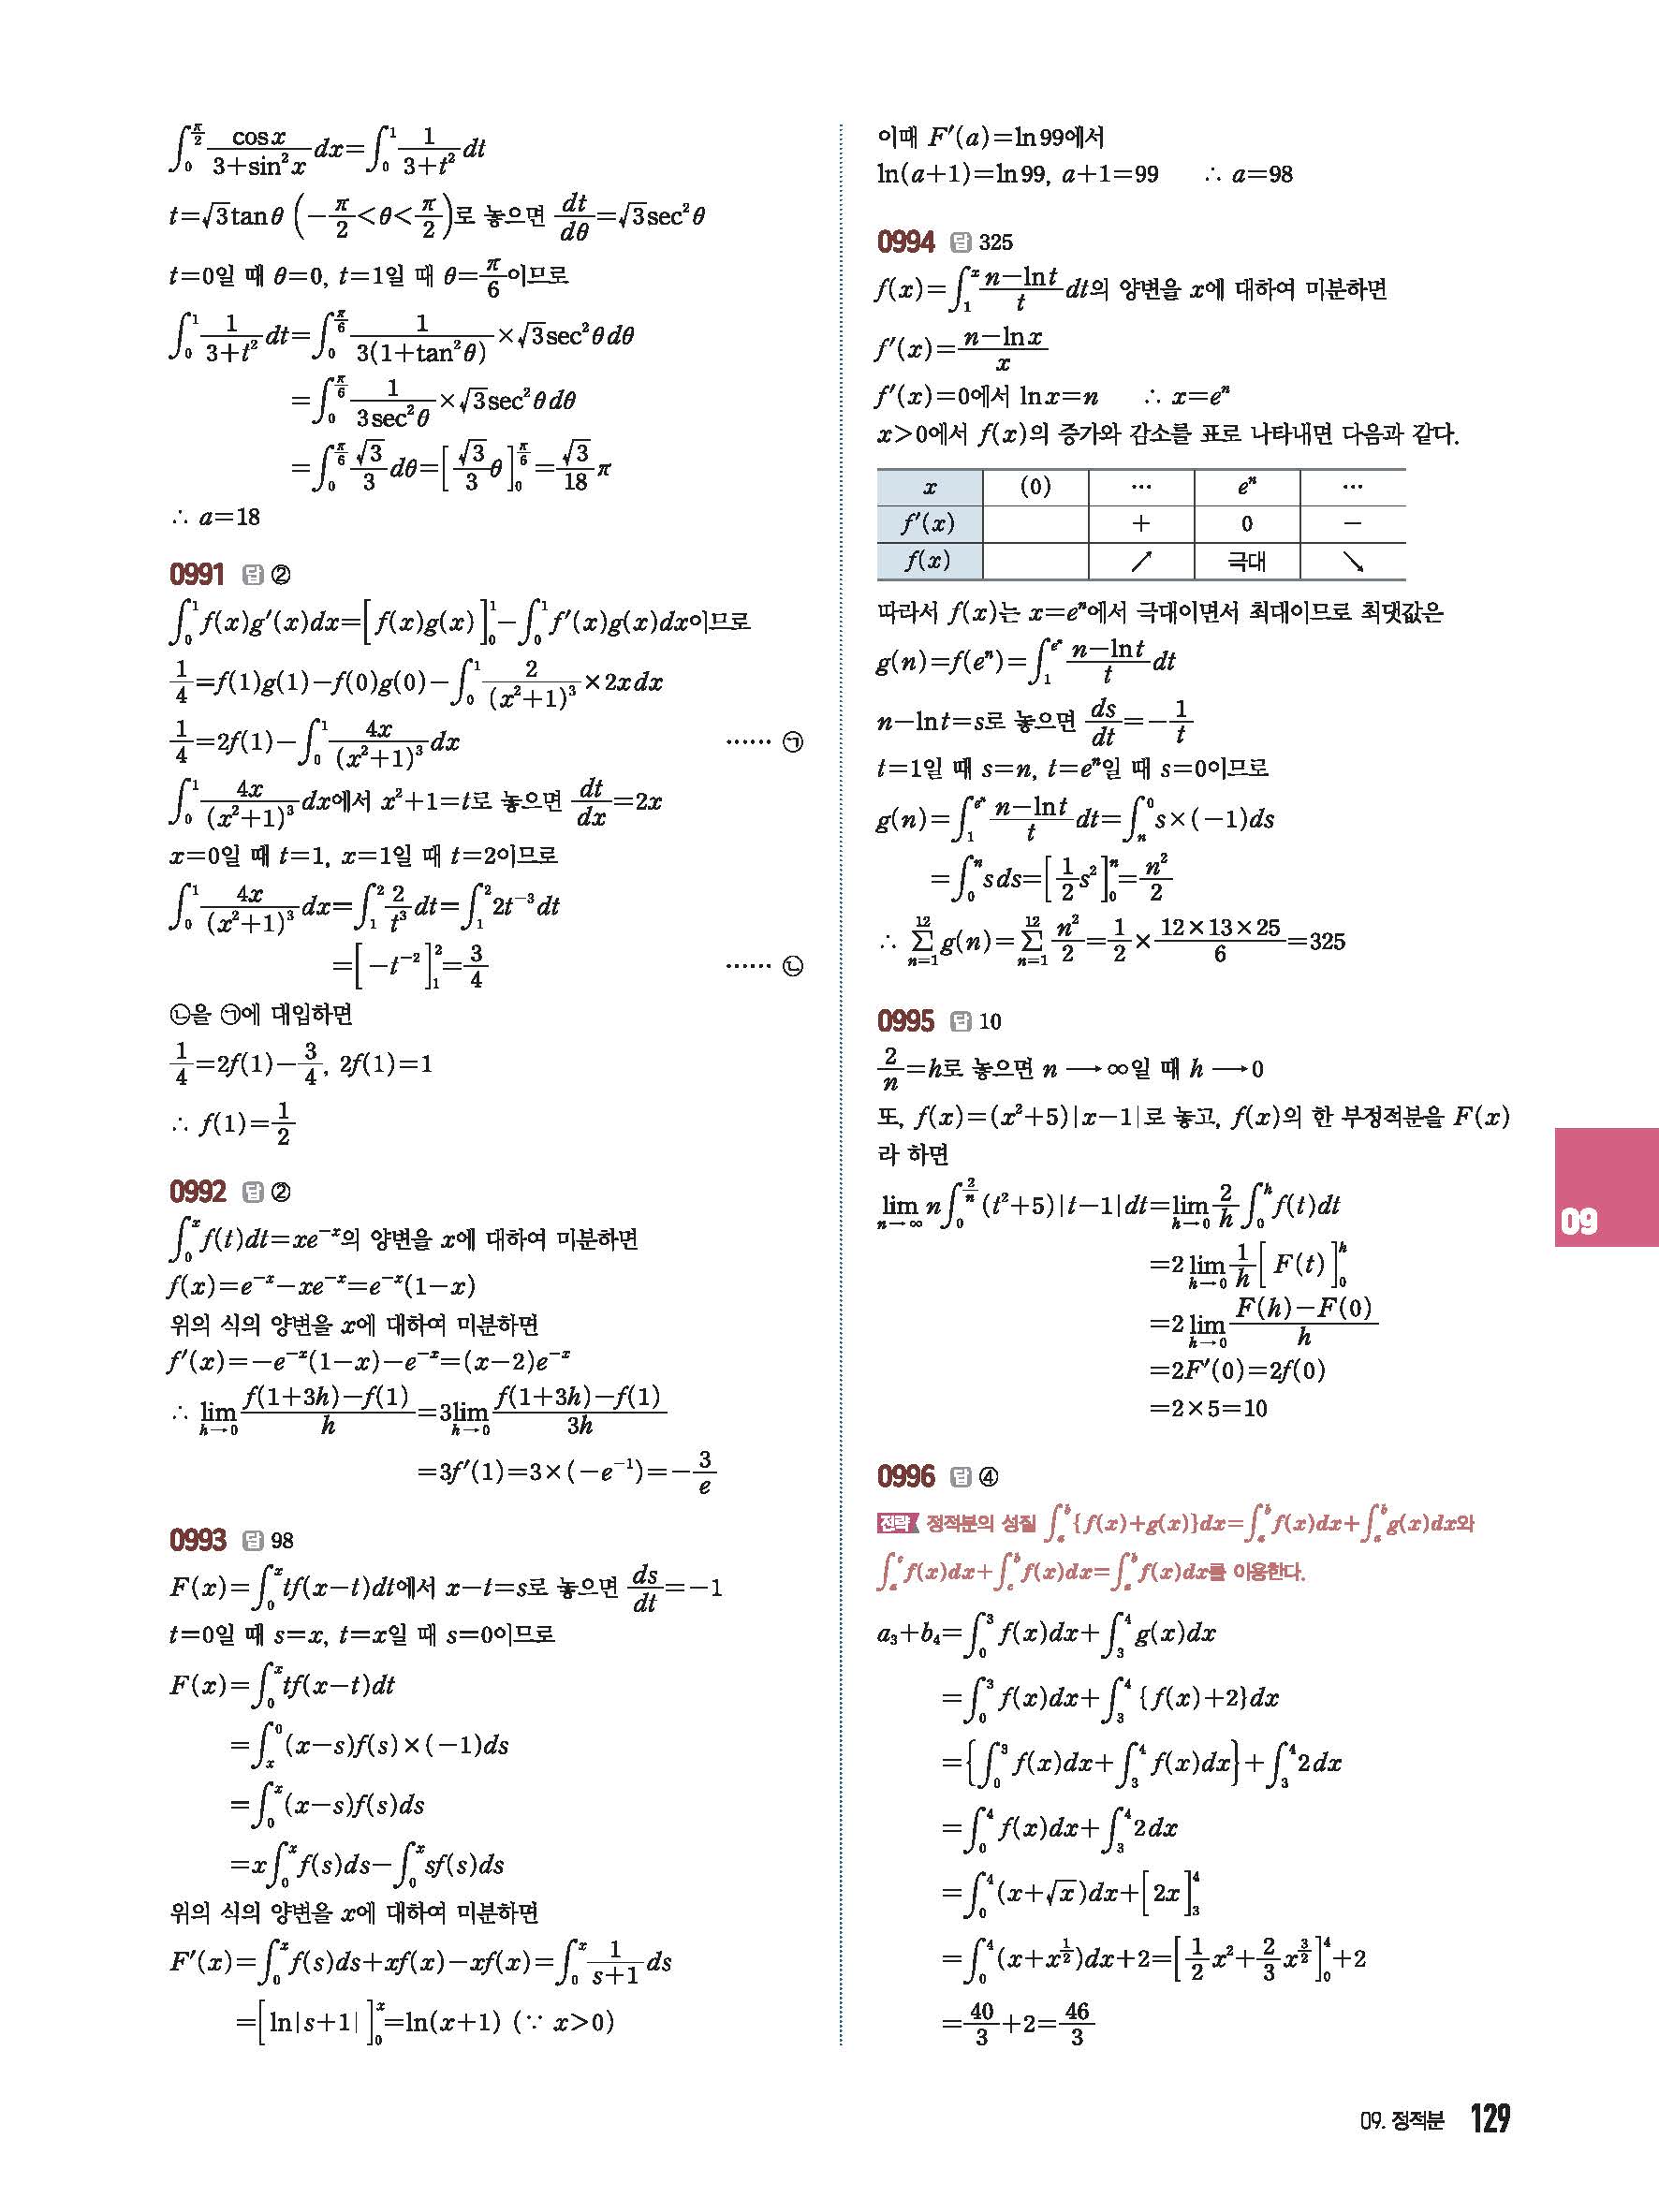 ∫₀^{π/2} cos x/(3+sin²x) dx=∫₀¹ 1/(3+t²) dt
t=√3 tan θ (-π/2<θ<π/2)로 놓으면 dt/dθ=√3 sec²θ
t=0일 때 θ=0, t=1일 때 θ=π/6이므로
∫₀¹ 1/(3+t²) dt=∫₀^{π/6} 1/(3(1+tan²θ))×√3 sec²θdθ
=∫₀^{π/6} 1/(3 sec²θ)×√3 sec²θdθ
=∫₀^{π/6} √3/3 dθ=[√3/3 θ]₀^{π/6}=√3/18 π
∴ a=18
0991 답 ②
∫₀¹ f(x)g′(x)dx=[f(x)g(x)]₀¹-∫₀¹ f′(x)g(x)dx이므로
1/4=f(1)g(1)-f(0)g(0)-∫₀¹ 2/(x²+1)³×2x dx
1/4=2f(1)-∫₀¹ 4x/(x²+1)³ dx …… ㉠
∫₀¹ 4x/(x²+1)³ dx에서 x²+1=t로 놓으면 dt/dx=2x
x=0일 때 t=1, x=1일 때 t=2이므로
∫₀¹ 4x/(x²+1)³ dx=∫₁² 2/t³ dt=∫₁² 2t⁻³dt
=[-t⁻²]₁²=3/4 …… ㉡
㉡을 ㉠에 대입하면
1/4=2f(1)-3/4, 2f(1)=1
∴ f(1)=1/2
0992 답 ②
∫₀ˣ f(t)dt=xe⁻ˣ의 양변을 x에 대하여 미분하면
f(x)=e⁻ˣ-xe⁻ˣ=e⁻ˣ(1-x)
위의 식의 양변을 x에 대하여 미분하면
f′(x)=-e⁻ˣ(1-x)-e⁻ˣ=(x-2)e⁻ˣ
∴ lim_{h→0} (f(1+3h)-f(1))/h=3lim_{h→0} (f(1+3h)-f(1))/3h
=3f′(1)=3×(-e⁻¹)=-3/e
0993 답 98
F(x)=∫₀ˣ tf(x-t)dt에서 x-t=s로 놓으면 ds/dt=-1
t=0일 때 s=x, t=x일 때 s=0이므로
F(x)=∫₀ˣ tf(x-t)dt
=∫ₓ⁰ (x-s)f(s)×(-1)ds
=∫₀ˣ (x-s)f(s)ds
=x∫₀ˣ f(s)ds-∫₀ˣ sf(s)ds
위의 식의 양변을 x에 대하여 미분하면
F′(x)=∫₀ˣ f(s)ds+xf(x)-xf(x)=∫₀ˣ 1/(s+1) ds
=[ln|s+1|]₀ˣ=ln(x+1) (∵ x>0)
이때 F′(a)=ln 99에서
ln(a+1)=ln 99, a+1=99 ∴ a=98
0994 답 325
f(x)=∫₁ˣ (n-ln t)/t dt의 양변을 x에 대하여 미분하면
f′(x)=(n-ln x)/x
f′(x)=0에서 ln x=n ∴ x=eⁿ
x>0에서 f(x)의 증가와 감소를 표로 나타내면 다음과 같다.
x (0) … eⁿ …
f′(x) + 0 -
f(x) ↗ 극대 ↘
따라서 f(x)는 x=eⁿ에서 극대이면서 최대이므로 최댓값은
g(n)=f(eⁿ)=∫₁^{eⁿ} (n-ln t)/t dt
n-ln t=s로 놓으면 ds/dt=-1/t
t=1일 때 s=n, t=eⁿ일 때 s=0이므로
g(n)=∫₁^{eⁿ} (n-ln t)/t dt=∫ₙ⁰ s×(-1)ds
=∫₀ⁿ s ds=[1/2 s²]₀ⁿ=n²/2
∴ Σ_{n=1}^{12} g(n)=Σ_{n=1}^{12} n²/2=1/2×(12×13×25)/6=325
0995 답 10
2/n=h로 놓으면 n→∞일 때 h→0
또, f(x)=(x²+5)|x-1|로 놓고, f(x)의 한 부정적분을 F(x)
라 하면
lim_{n→∞} n∫₀^{2/n} (t²+5)|t-1|dt=lim_{h→0} 2/h ∫₀ʰ f(t)dt
=2 lim_{h→0} 1/h [F(t)]₀ʰ
=2 lim_{h→0} (F(h)-F(0))/h
=2F′(0)=2f(0)
=2×5=10
0996 답 ④
전략 정적분의 성질 ∫ₐᵇ {f(x)+g(x)}dx=∫ₐᵇ f(x)dx+∫ₐᵇ g(x)dx와
∫ₐᶜ f(x)dx+∫_c^b f(x)dx=∫ₐᵇ f(x)dx를 이용한다.
a₃+b₄=∫₀³ f(x)dx+∫₃⁴ g(x)dx
=∫₀³ f(x)dx+∫₃⁴ {f(x)+2}dx
={∫₀³ f(x)dx+∫₃⁴ f(x)dx}+∫₃⁴ 2dx
=∫₀⁴ f(x)dx+∫₃⁴ 2dx
=∫₀⁴ (x+√x)dx+[2x]₃⁴
=∫₀⁴ (x+x^{1/2})dx+2=[1/2 x²+2/3 x^{3/2}]₀⁴+2
=40/3+2=46/3
09
09. 정적분 129